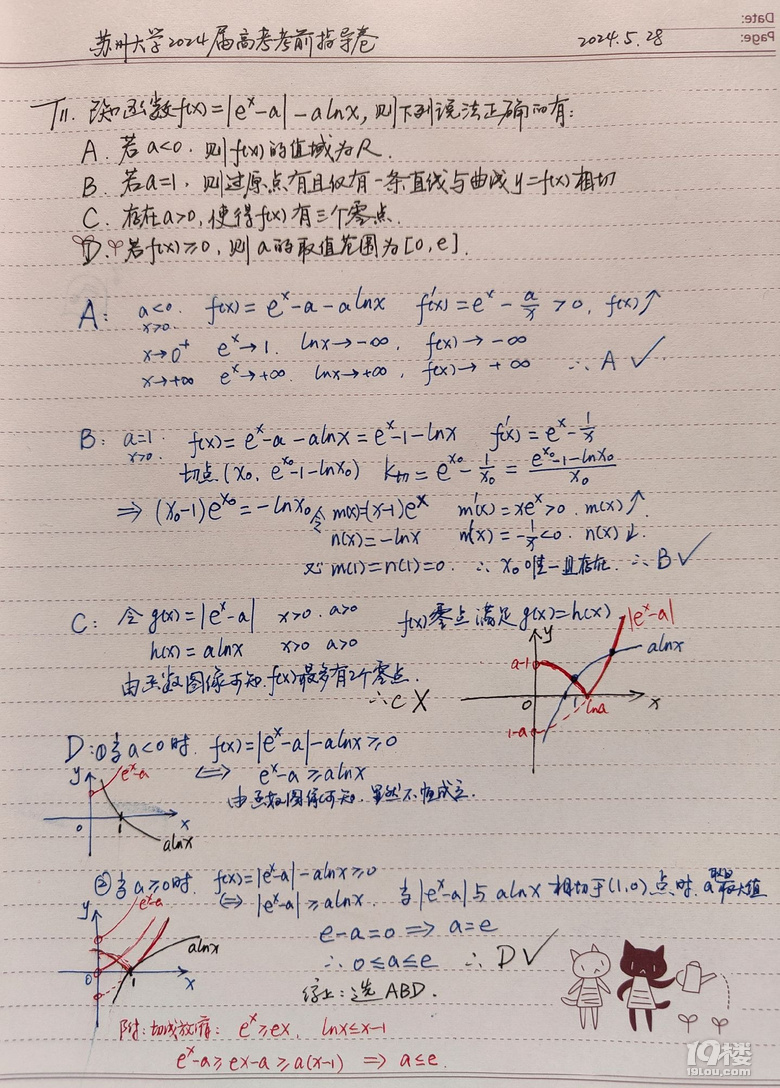 Date:
Page:
苏州大学2024届高考考前指导卷 2024.5.28
T11. 已知函数f(x)=|e^x-a|-alnx, 则下列说法正确的有:
A. 若a<0. 则f(x)的值域为R.
B. 若a=1, 则过原点有且仅有一条直线与曲线y=f(x)相切
C. 存在a>0, 使得f(x)有三个零点.
D. 若f(x)≥0, 则a的取值范围为[0,e].
A: a<0 x>0. f(x)=e^x-a-alnx f'(x)=e^x-a/x>0, f(x)↑
x→0⁺ e^x→1. lnx→-∞, f(x)→-∞
x→+∞ e^x→+∞. lnx→+∞, f(x)→+∞ ∴A✓
B: a=1 x>0. f(x)=e^x-a-alnx=e^x-1-lnx f'(x)=e^x-1/x
切点(x₀, e^x₀-1-lnx₀) k切=e^x₀-1/x₀=(e^x₀-1-lnx₀)/x₀
⇒(x₀-1)e^x₀=-lnx₀ 令m(x)=(x-1)e^x m'(x)=xe^x>0. m(x)↑.
n(x)=-lnx n'(x)=-1/x<0. n(x)↓.
又m(1)=n(1)=0. ∴x₀唯一且存在. ∴B✓
C: 令g(x)=|e^x-a| x>0. a>0 f(x)零点满足g(x)=h(x)
h(x)=alnx x>0 a>0
由函数图像可知.f(x)最多有2个零点.
∴C✗
y |e^x-a| alnx
a-1
0 1 lna x
1-a
D: ①当a<0时. f(x)=|e^x-a|-alnx≥0
⇔ e^x-a≥alnx
由函数图像可知. 显然不恒成立.
y e^x-a
0 1 x
alnx
②当a≥0时. f(x)=|e^x-a|-alnx≥0
⇔|e^x-a|≥alnx. 当|e^x-a|与alnx相切于(1,0)点时. a取最大值
e-a=0⇒a=e
∴0≤a≤e ∴D✓
综上: 选ABD.
y e^x-a
alnx
0 1 x
附: 切线放缩: e^x≥ex, lnx≤x-1
e^x-a≥ex-a≥a(x-1) ⇒ a≤e.
19楼
19lou.com